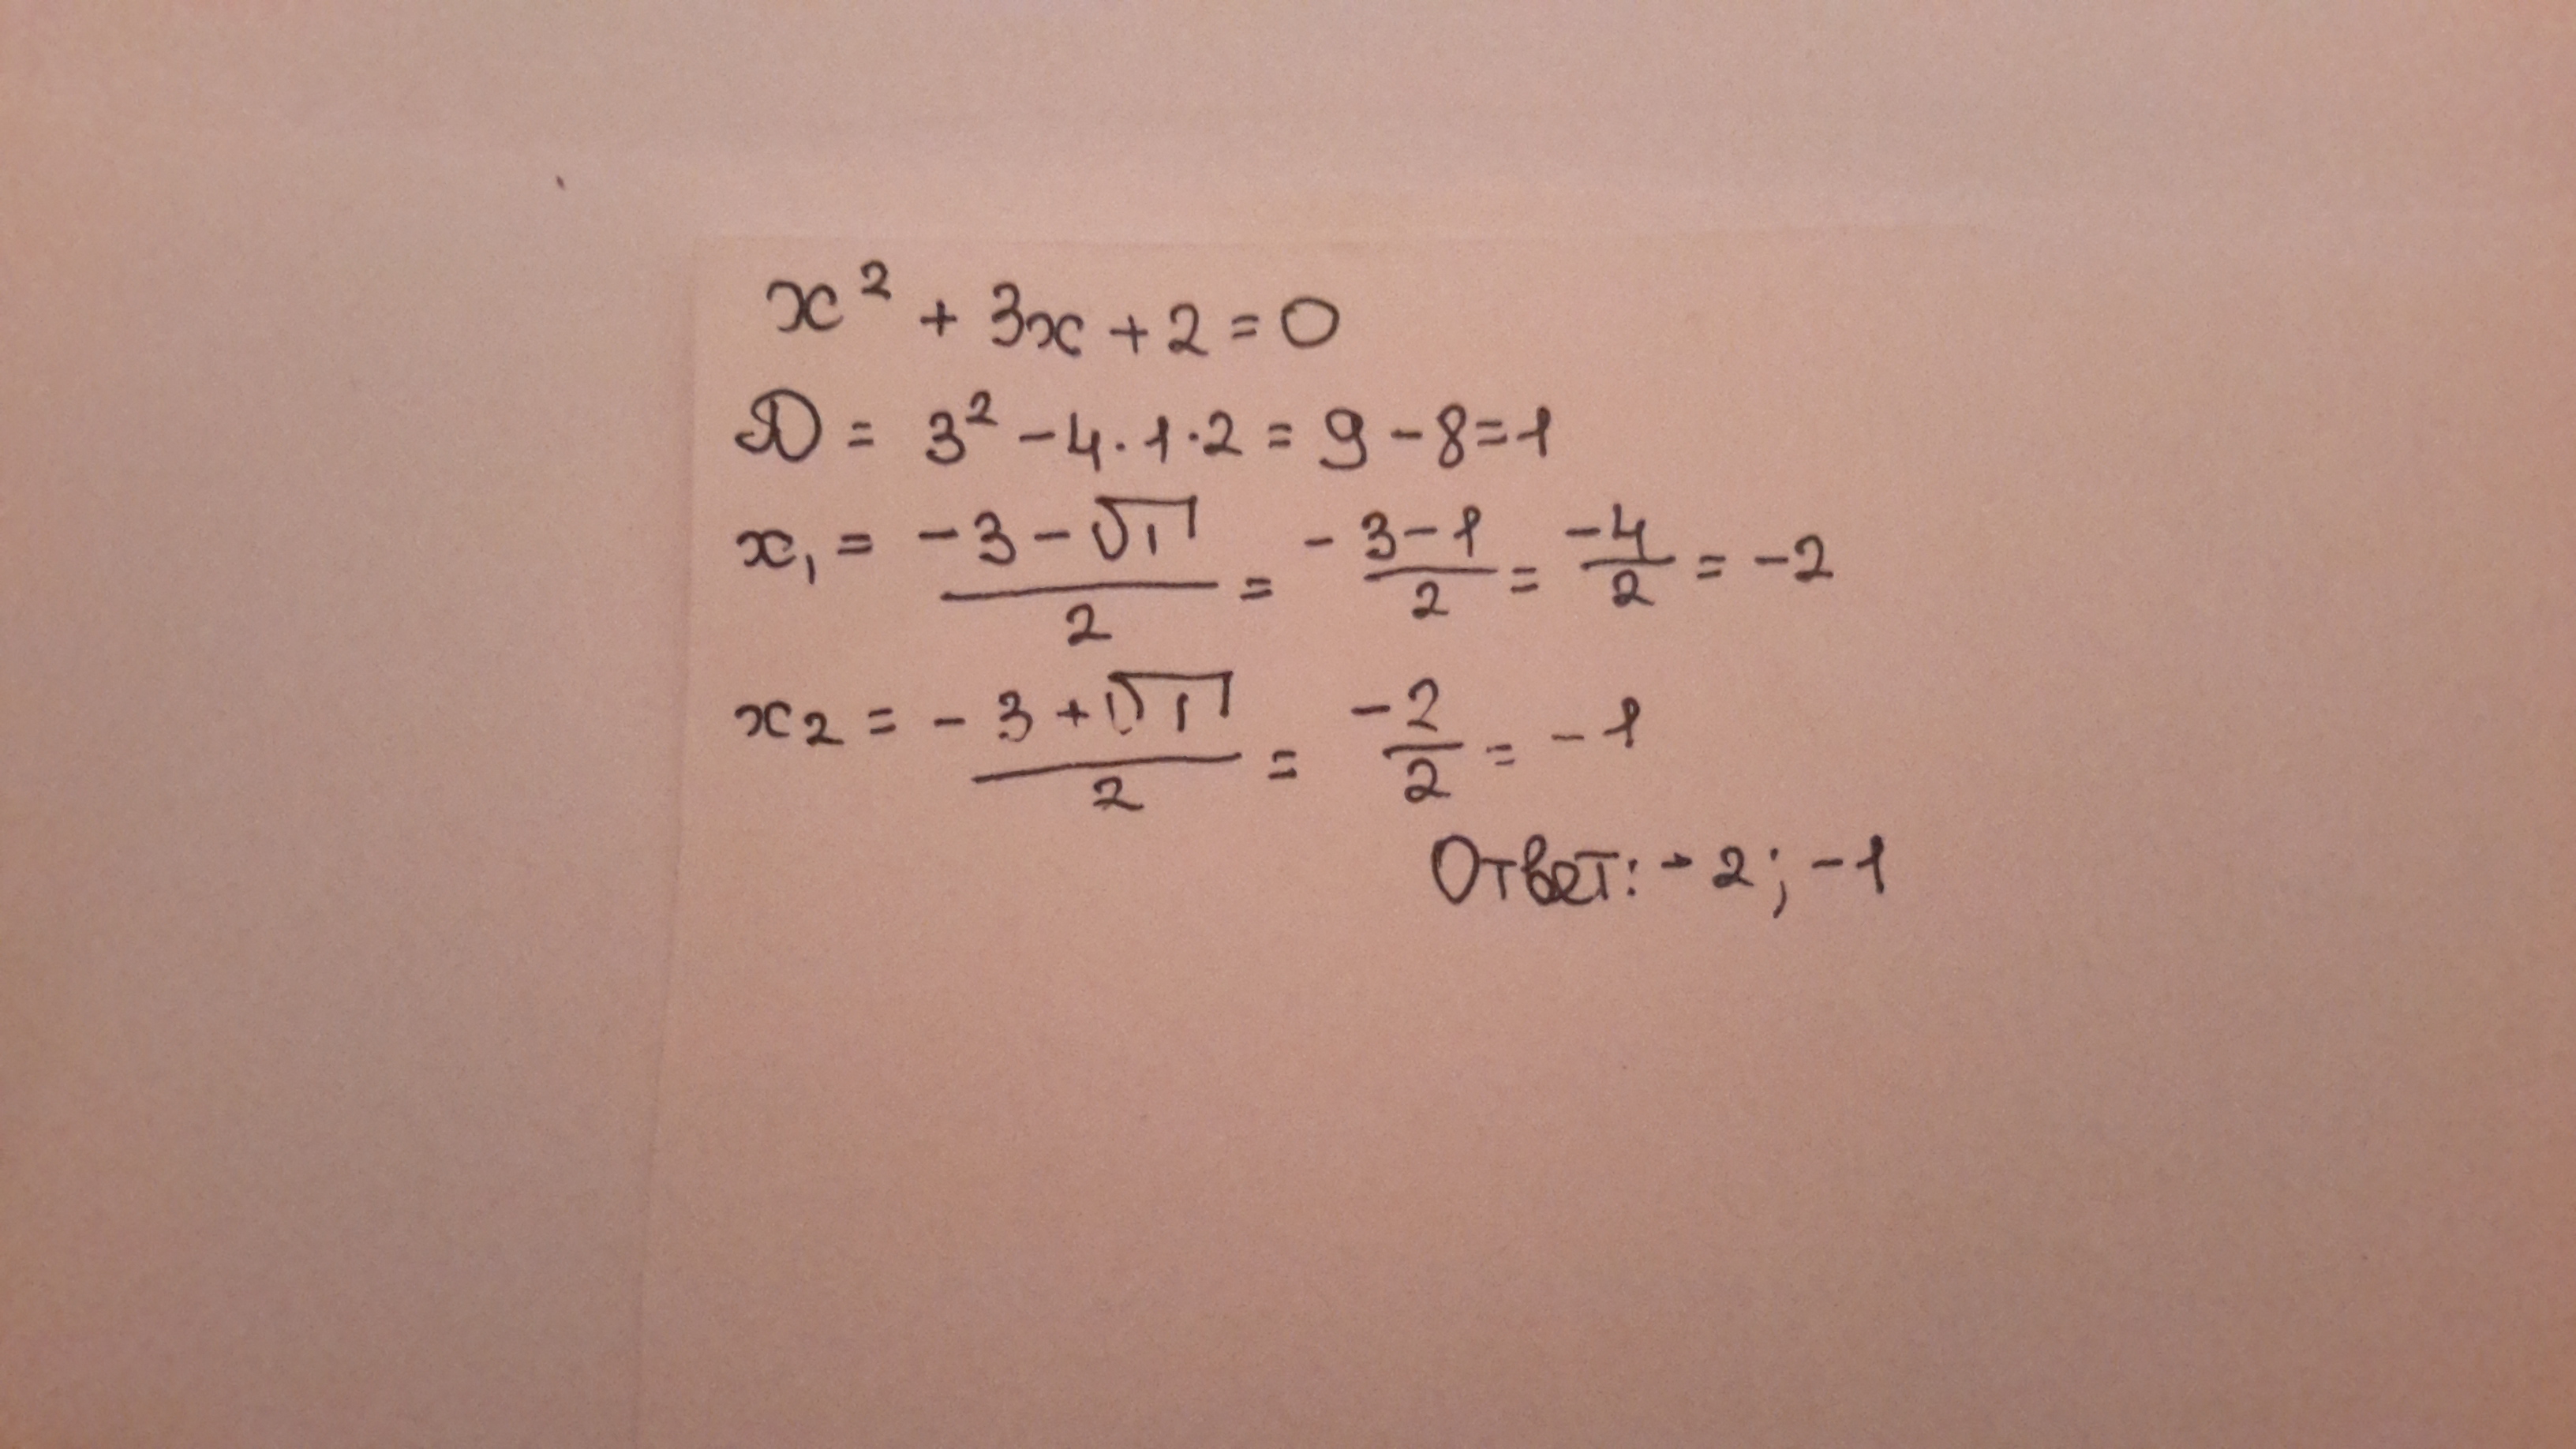 x² + 3x + 2 = 0
D = 3² - 4 · 1 · 2 = 9 - 8 = 1
x₁ = (-3 - √1)/2 = (-3 - 1)/2 = -4/2 = -2
x₂ = (-3 + √1)/2 = -2/2 = -1
Ответ: -2; -1